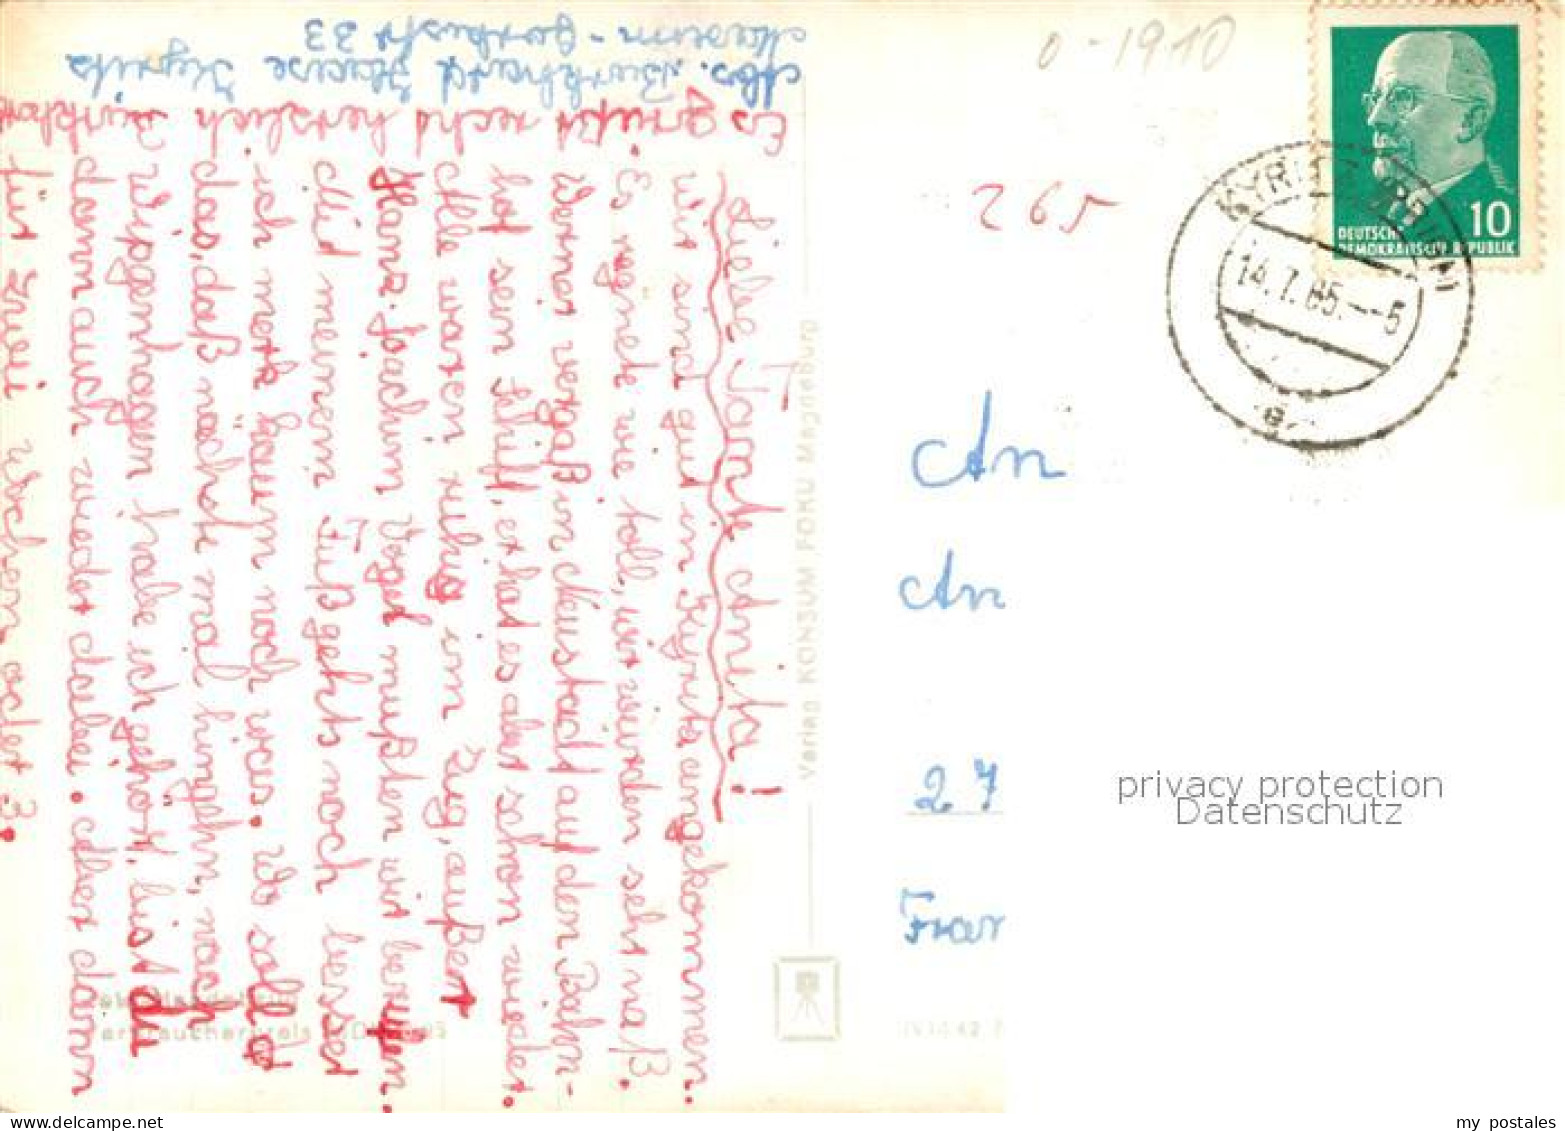 Abs. Burkhard Hause Kyritz
Maxim-Gorkistr 33
Liebe Tante Anita!
wir sind gut in Kyritz angekommen.
Es regnete wie toll, wir wurden sehr naß.
Werner vergaß in Neustadt auf den Bahn-
hof sein Schiff, er hat es aber schon wieder.
Alle waren ruhig im Zug, außer
Hans-Joachim Vogel mußten wir berufen.
Mit meinem Fuß gehts noch besser
ich merk kaum noch was. Wo soll
das, daß nächste mal hingehn, nach
Wipgenhagen habe ich gehört, bist du
dann auch wieder dabei. Aber dann
für zwei wochen oder 3.
Es grüßt recht herzlich
Verlag KONSUM FOKU Magdeburg
0-1910
265
KYRITZ
14.7.65.--5
e
10
DEUTSCHE
DEMOKRATISCHE REPUBLIK
An
An
27
Fran
privacy protection
Datenschutz
my postales